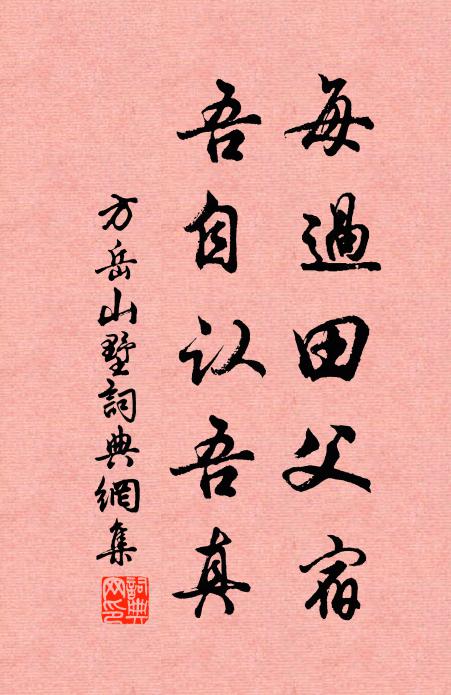 每過田父宿
吾自认吾真
方岳山墅詞典網集
詞典網印